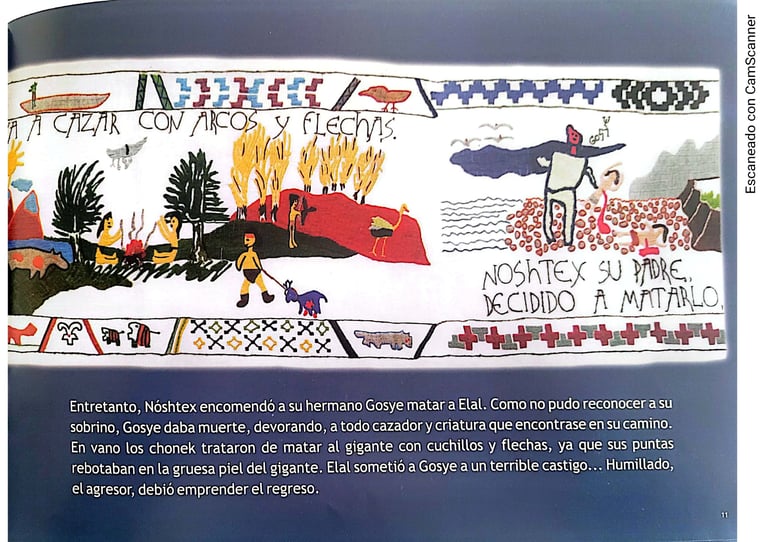 A A CAZAR CON ARCOS Y FLECHAS.
GOSYE
NOSHTEX SU PADRE,
DECIDIDO A MATARLO.
Entretanto, Nóshtex encomendó a su hermano Gosye matar a Elal. Como no pudo reconocer a su
sobrino, Gosye daba muerte, devorando, a todo cazador y criatura que encontrase en su camino.
En vano los chonek trataron de matar al gigante con cuchillos y flechas, ya que sus puntas
rebotaban en la gruesa piel del gigante. Elal sometió a Gosye a un terrible castigo... Humillado,
el agresor, debió emprender el regreso.
11
Escaneado con CamScanner